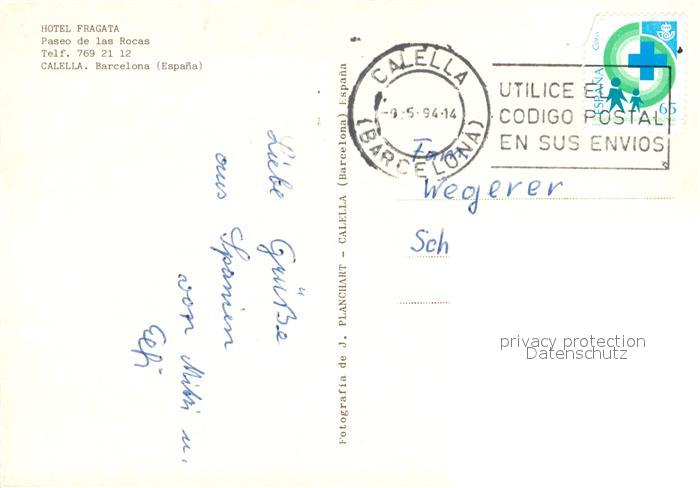 HOTEL FRAGATA
Paseo de las Rocas
Telf. 769 21 12
CALELLA. Barcelona (España)
Liebe Grüße
aus Spanien
von Mitzi u.
Elfi
Fotografía de J. PLANCHART - CALELLA (Barcelona) España
CALELLA
-9.5.94-14
(BARCELONA)
UTILICE EL
CODIGO POSTAL
EN SUS ENVIOS
ESPAÑA
65
Fam
Wegerer
Sch
privacy protection
Datenschutz